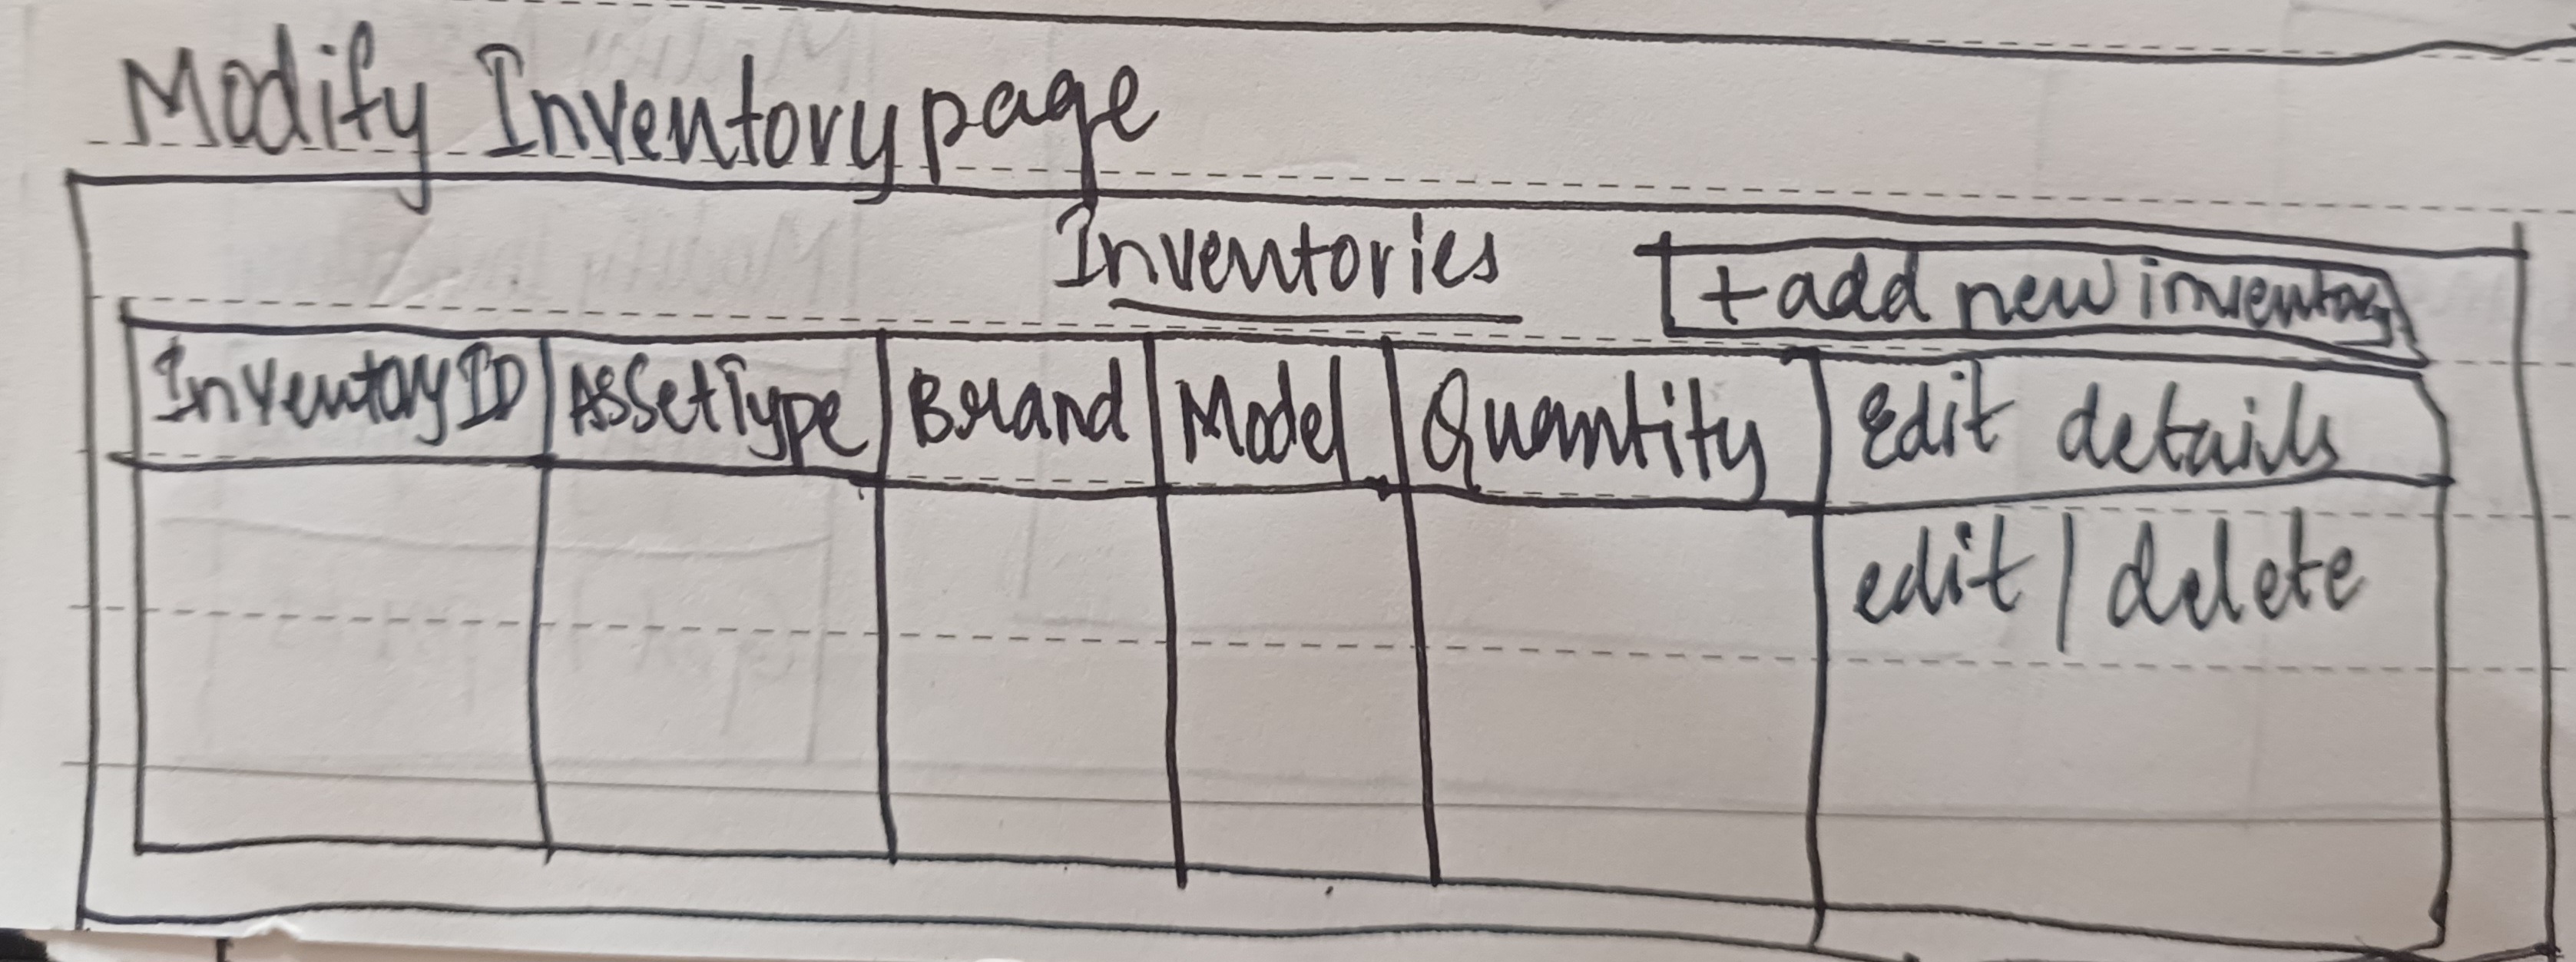 Modify Inventory page
Inventories
+ add new inventory
InventoryID AssetType Brand Model Quantity Edit details
edit / delete